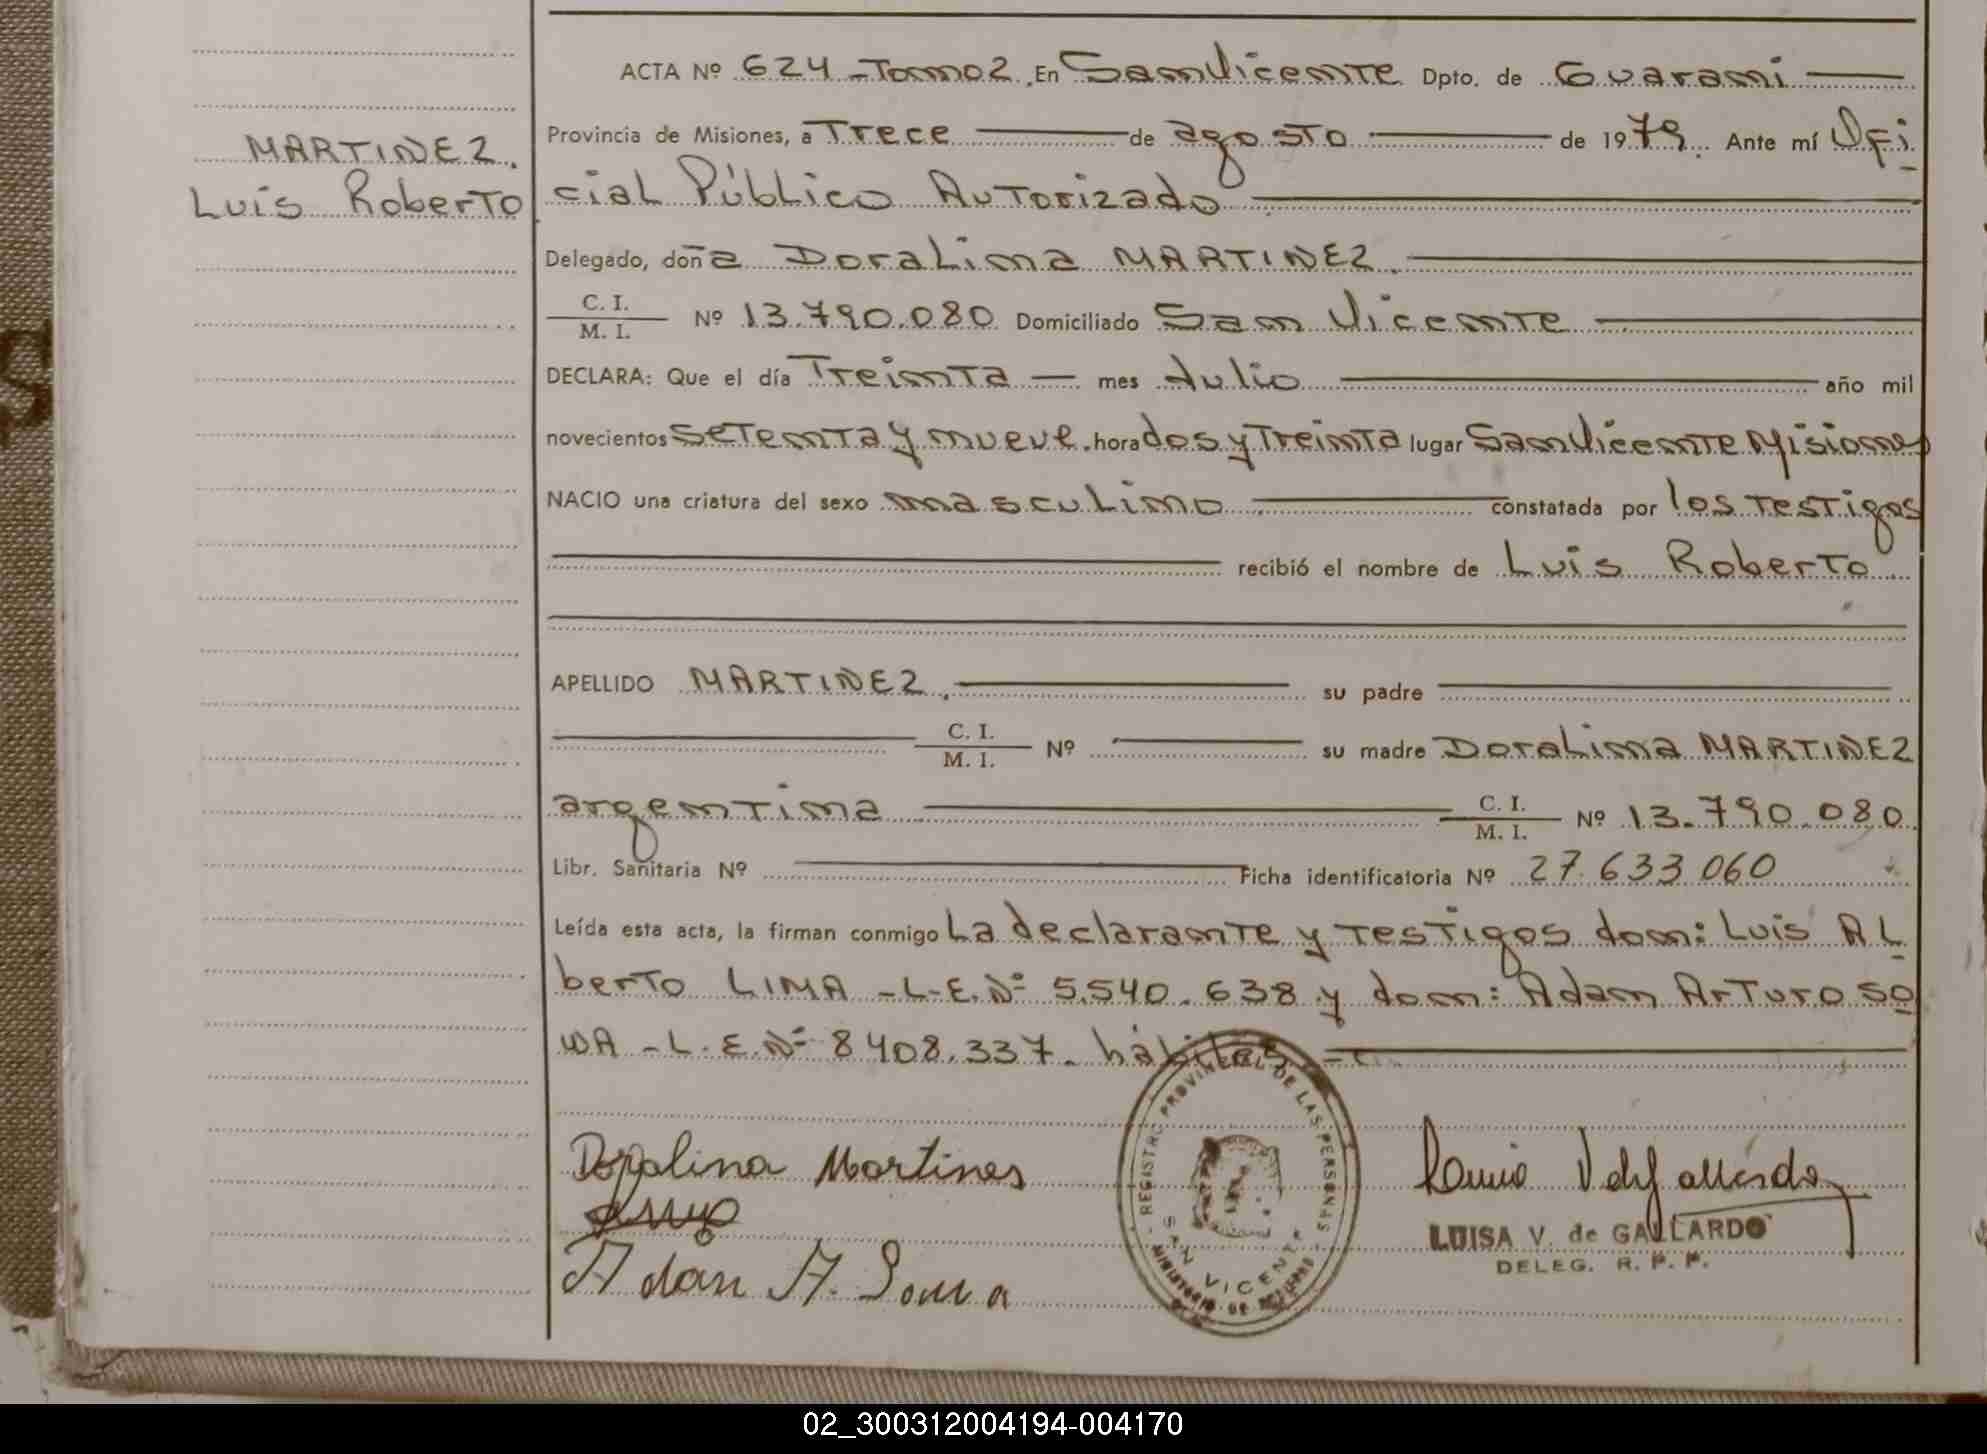 ACTA Nº 624 - Tomo 2. En San Vicente Dpto. de Guaraní
MARTINEZ.
Luis Roberto
Provincia de Misiones, a Trece de agosto de 1979. Ante mí Ofi
cial Público Autorizado
Delegado, doña Doralina MARTINEZ.
C. I.
M. I. Nº 13.790.080 Domiciliado San Vicente
DECLARA: Que el día Treinta mes Julio año mil
novecientos setenta y nueve. hora dos y Treinta lugar San Vicente Misiones
NACIO una criatura del sexo masculino constatada por los testigos
recibió el nombre de Luis Roberto
APELLIDO MARTINEZ. su padre
C. I.
M. I. Nº su madre Doralina MARTINEZ
argentina C. I.
M. I. Nº 13.790.080
Libr. Sanitaria Nº Ficha identificatoria Nº 27.633.060
Leída esta acta, la firman conmigo La declarante y testigos don: Luis AL
berto LIMA - L.E.Nº 5.540.638 y don: Adan Arturo SO
WA - L.E.Nº 8408.337. hábiles
Doralina Martines
Adán A. Sowa
REGISTRO PROVINCIAL DE LAS PERSONAS
SAN VICENTE
MINISTERIO DE
LUISA V. de GALLARDO
DELEG. R. P. P.
02_300312004194-004170